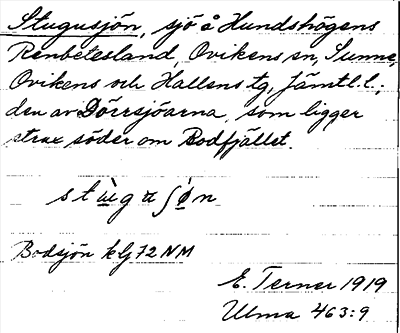 Stugusjön, sjö å Hundshögens
Renbetesland, Ovikens sn, Sunne,
Ovikens och Hallens tg, Jämtl. l.;
den av Dörrsjöarna, som ligger
strax söder om Bodfjället.
stùgaʃøn
Bodsjön kbl 72 NM
E. Terner 1919
Ulma 463:9